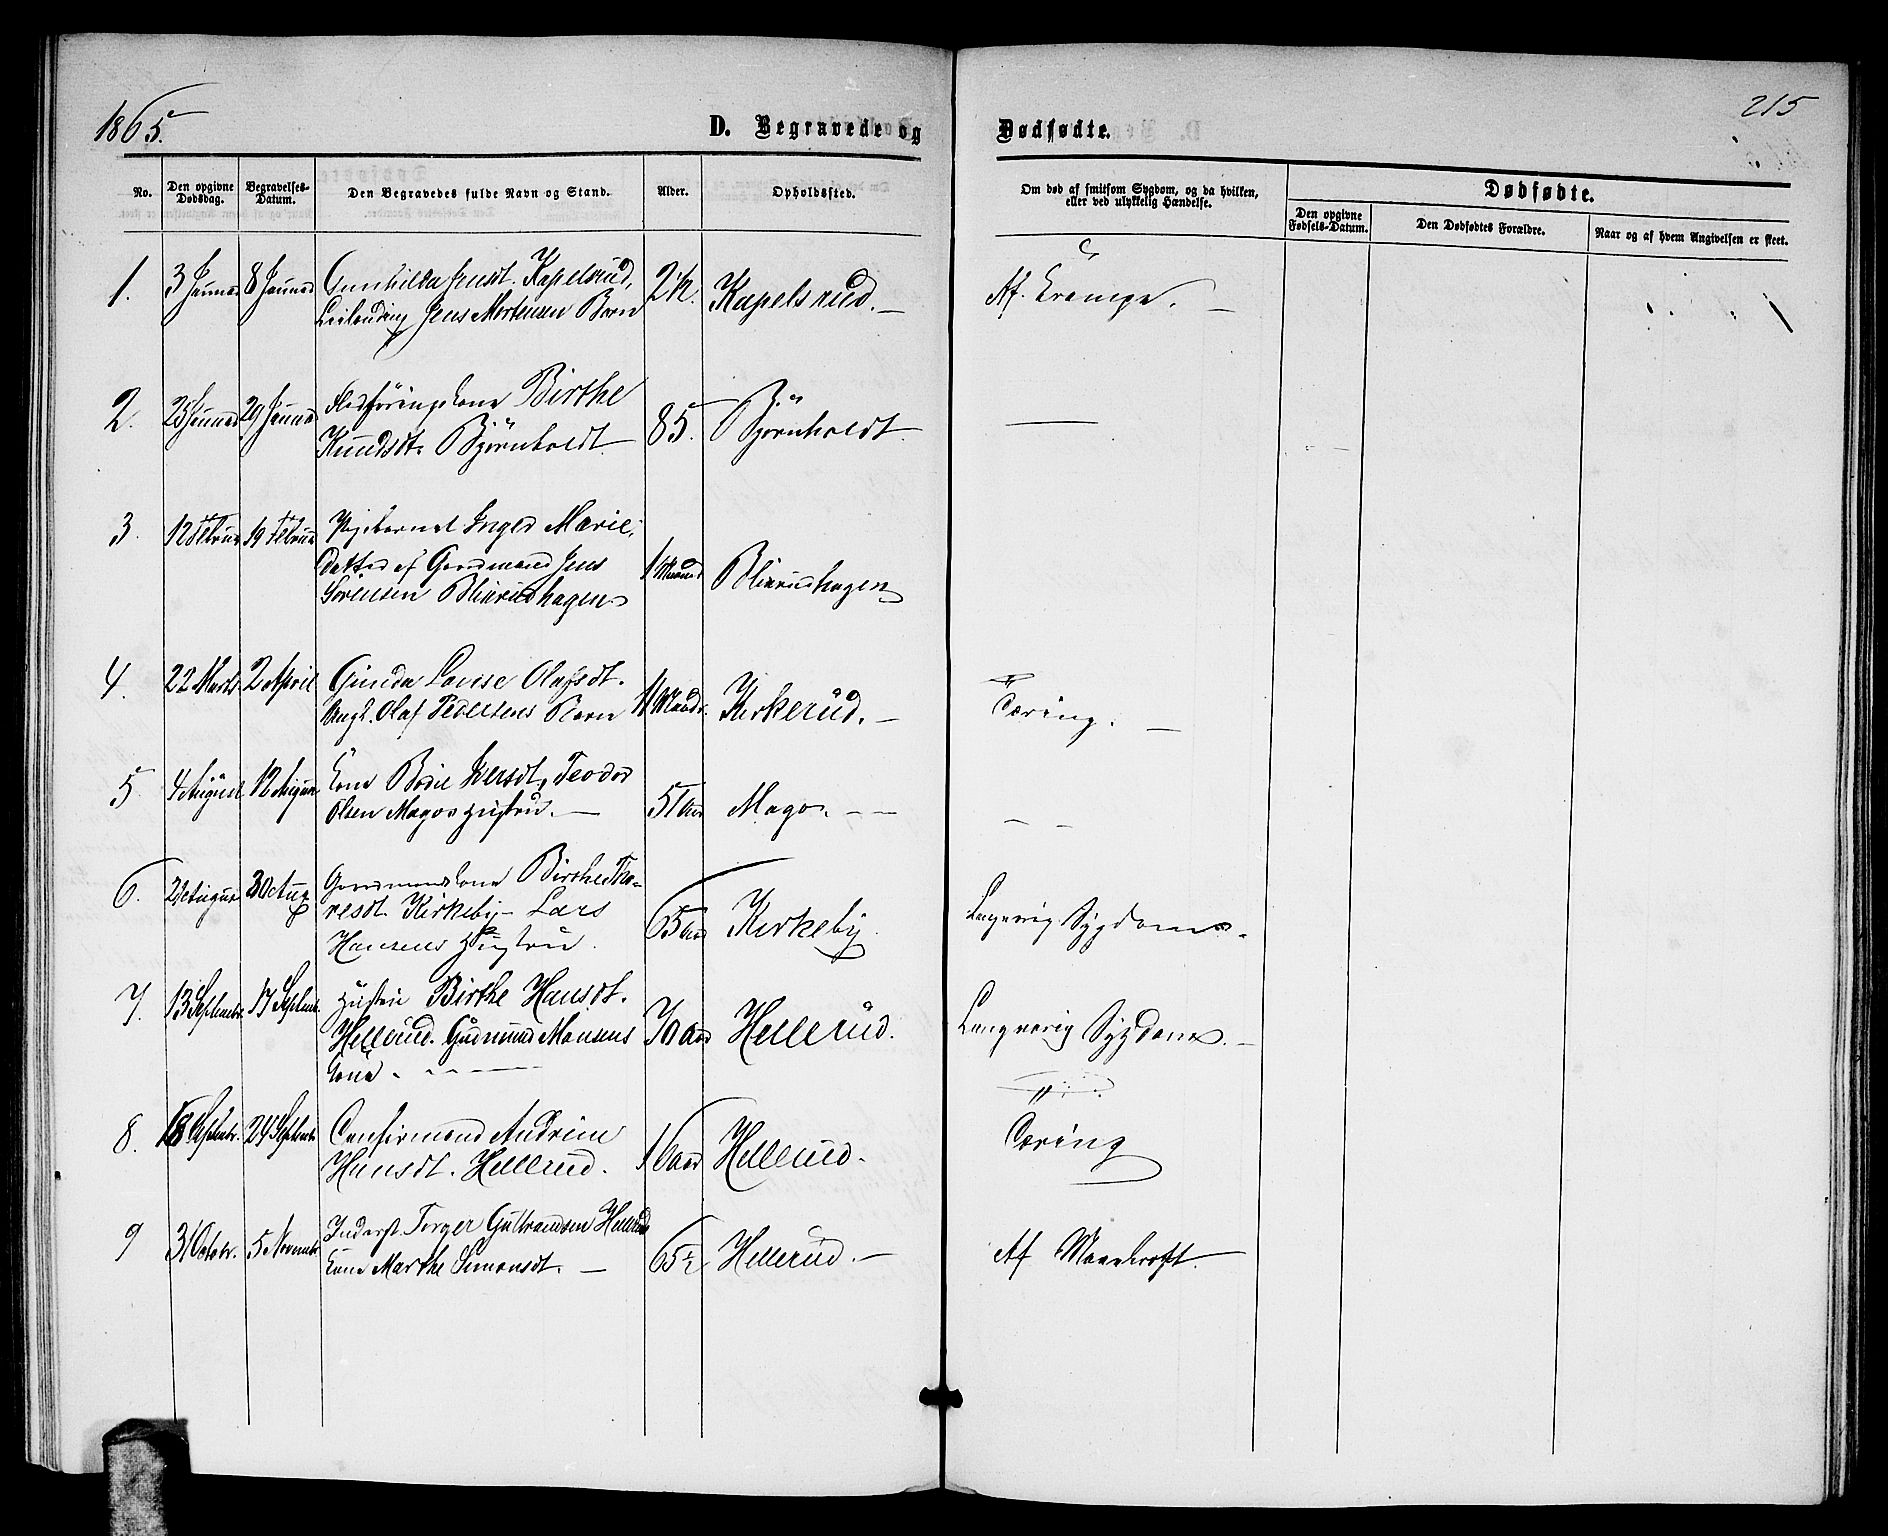 1865.
D. Begravede og
Dødfødte.
215
No.
Den opgivne Dødsdag.
Begravelses-Datum.
Den Begravedes fulde Navn og Stand.
Alder.
Opholdssted.
Om død af smitsom Sygdom, og da hvilken, eller ved ulykkelig Hændelse.
Dødfødte.
Den opgivne Fødsels-Datum.
Den Dødfødtes Forældre.
Naar og af hvem Angivelsen er skeet.
1. 3 Januar 8 Januar Gunhilda Jensdt. Kapelsrud, Kapelsrud. Af Krampe.
Leilending Jens Mortensen Barn
2. 23 Januar 29 Januar Birthe 85. Bjørnholdt
Knudsdt. Bjørnholdt
3. 12 Februar 19 Februar Inger Marie, 1 Maaned Blixrudhagen
Datter af Gaardmand Jens
Sørensen Blixrudhagen
4. 22 Marts 2 April Gunda Lovise Olafsdt. Kirkerud. Tæring.
Ungk. Olaf Pedersens Barn
5. 4 August 12 August Kone Bodil Iversdt, Teodor 51 aar Mago.
Olsen Magos Hustru.
6. 30 Aug Gaardmandskone Birthe Tho- 65 aar Kirkeby Langvarig Sygdom.
resdt. Kirkeby Lars
Hansens Hustru.
7. 13 September 17 Septemb. Hustru Birthe Hansdt. 70 aar Hellerud. Langvarig Sygdom.
Hellerud. Gudmund Monsens
Kone.
8. 18 Septembr. 24 Septembr. Confirmand Andrine 16 aar Hellerud. Tæring
Hansdt. Hellerud.
9 31 Octobr. 5 Novembr. Inderst Torger Gulbrandsen Hellerud 65½ Hellerud. Af
Kone Marthe Simonsdt.